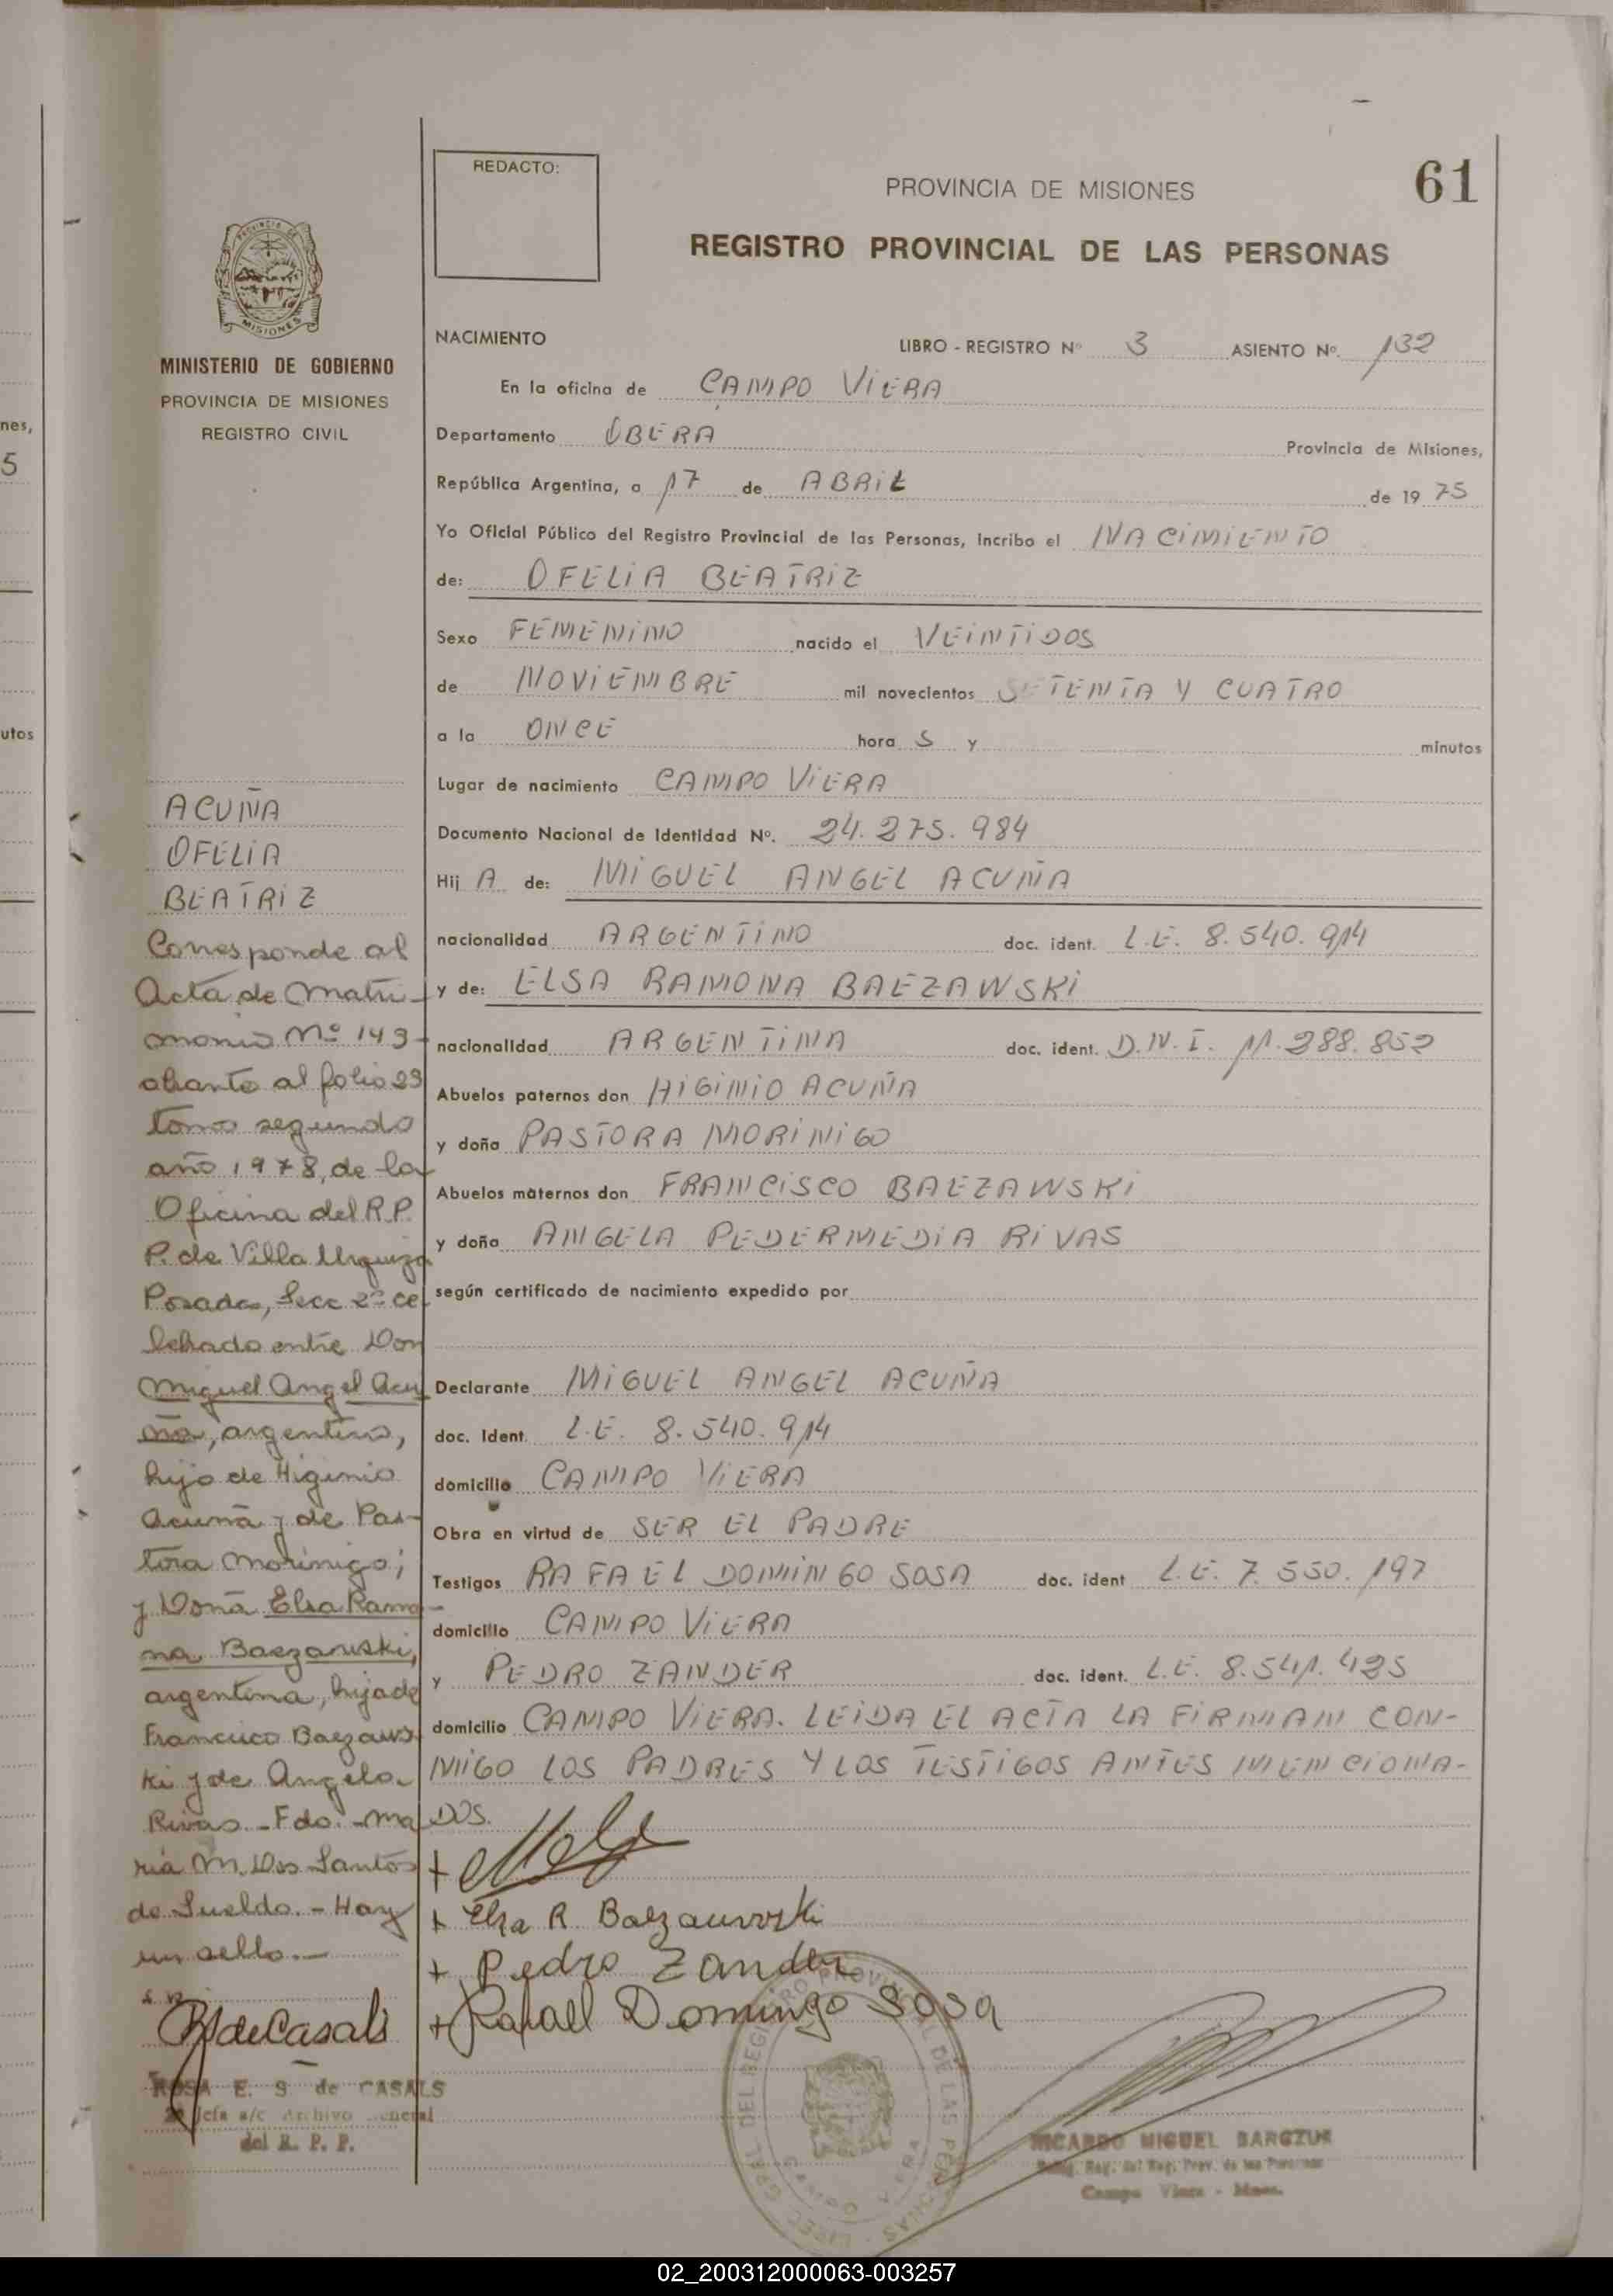 nes,
5
utos
REDACTO:
PROVINCIA DE MISIONES
61
REGISTRO PROVINCIAL DE LAS PERSONAS
PROVINCIA DE
MISIONES
MINISTERIO DE GOBIERNO
PROVINCIA DE MISIONES
REGISTRO CIVIL
ACUÑA
OFELIA
BEATRIZ
Corresponde al
Acta de Matri-
monio Nº 149
obrante al folio 29
tomo segundo
año 1978, de la
Oficina del R.P.
P. de Villa Urquiza
Posadas, Secc 2ª ce
lebrado entre Don
Miguel Angel Acu
ña, argentino,
hijo de Higinio
Acuña y de Pas-
tora Morinigo;
y Doña Elsa Ramo-
na Baezawski,
argentina, hija de
Francisco Baezaws
ki y de Angela
Rivas - Fdo. - Ma
ria M. Dos Santos
de Sueldo. - Hay
un sello. -
RSdeCasals
ROSA E. S de CASALS
2ª Jefa a/c Archivo General
del R. P. P.
NACIMIENTO LIBRO - REGISTRO Nº 3 ASIENTO Nº. 132
En la oficina de CAMPO VIERA
Departamento OBERA Provincia de Misiones,
República Argentina, a 17 de ABRIL de 19 75
Yo Oficial Público del Registro Provincial de las Personas, incribo el NACIMIENTO
de: OFELIA BEATRIZ
Sexo FEMENINO nacido el VEINTIDOS
de NOVIEMBRE mil novecientos SETENTA Y CUATRO
a la ONCE hora S y minutos
Lugar de nacimiento CAMPO VIERA
Documento Nacional de Identidad Nº. 24.275.984
Hij A de: MIGUEL ANGEL ACUÑA
nacionalidad ARGENTINO doc. ident. L.E. 8.540.914
y de: ELSA RAMONA BAEZAWSKI
nacionalidad ARGENTINA doc. ident. D.N.I. 11.288.852
Abuelos paternos don HIGINIO ACUÑA
y doña PASTORA MORINIGO
Abuelos maternos don FRANCISCO BAEZAWSKI
y doña ANGELA PEDERMEDIA RIVAS
según certificado de nacimiento expedido por
Declarante MIGUEL ANGEL ACUÑA
doc. ident. L.E. 8.540.914
domicilio CAMPO VIERA
Obra en virtud de SER EL PADRE
Testigos RAFAEL DOMINGO SOSA doc. ident L.E. 7.550.197
domicilio CAMPO VIERA
y PEDRO ZANDER doc. ident. L.E. 8.541.425
domicilio CAMPO VIERA. LEIDA EL ACTA LA FIRMAN CON-
MIGO LOS PADRES Y LOS TESTIGOS ANTES MENCIONA-
DOS.
+
+ Elsa R Baezauwski
+ Pedro Zander
+ Rafael Domingo Sosa
DEL REGISTRO PROVINCIAL DE LAS PERSONAS
CAMPO VIERA
RICARDO MIGUEL BARCZUK
Reg. del Reg. Prov. de las Personas
Campo Viera - Mnes.
02_200312000063-003257